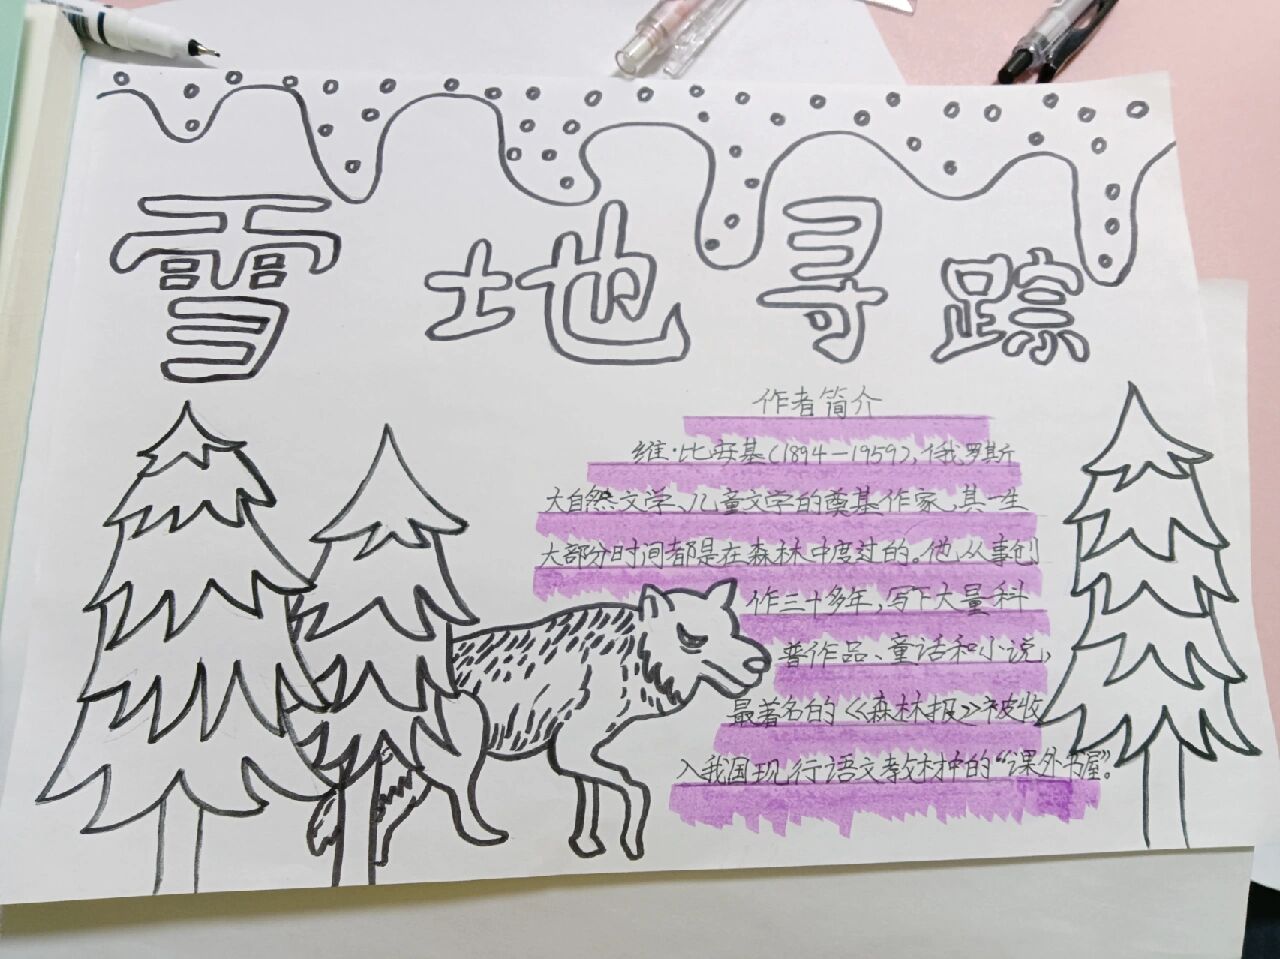 雪地寻踪
作者简介
维·比安基(1894—1959),俄罗斯
大自然文学、儿童文学的奠基作家,其一生
大部分时间都是在森林中度过的。他从事创
作三十多年,写下大量科
普作品、童话和小说,
最著名的《森林报》被收
入我国现行语文教材中的“课外书屋”。